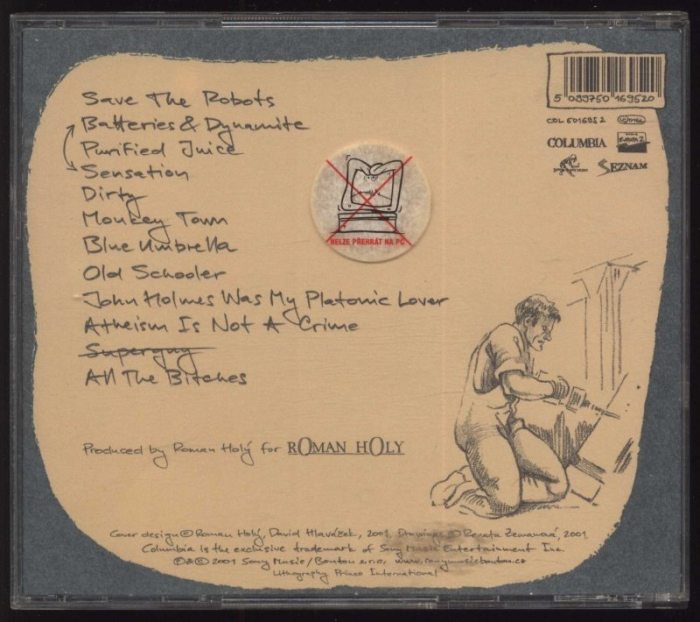 Save The Robots
Batteries & Dynamite
Purified Juice
Sensation
Dirty
Monkey Town
Blue Umbrella
Old Schooler
John Holmes Was My Platonic Lover
Atheism Is Not A Crime
Superguy
All The Bitches
NELZE PŘEHRÁT NA PC
5 099750 169520
COL 501695 2
COLUMBIA
SEZNAM
Produced by Roman Holý for ROMAN HOLY
Cover design © Roman Holý, David Hlaváček, 2001, Drawings © Renata Zemanová, 2001
Columbia is the exclusive trademark of Sony Music Entertainment Inc.
℗ & © 2001 Sony Music/Bonton s.r.o., www.sonymusicbonton.cz
Lithography Primco International